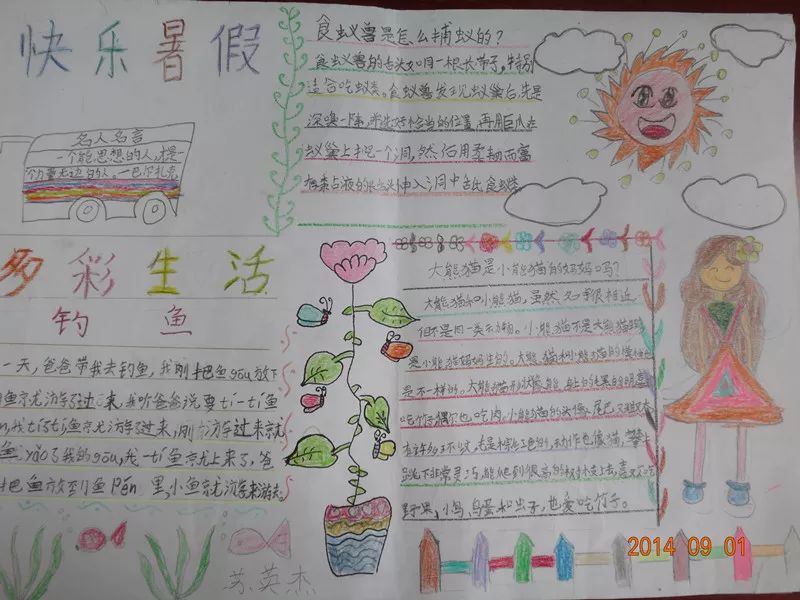 快乐暑假
名人名言
一个能思想的人,才是
个力量无边的人。一巴尔扎克
多彩生活
钓 鱼
一天,爸爸带我去钓鱼,我刚把鱼gōu放下
鱼京尤游了过来,我听爸爸说要tí一tí鱼
我tí了tí鱼京尤游了过来,刚游过来就
鱼 yǎo了我的gōu,我一tí鱼京尤上来了,爸
把鱼放到鱼Pén 里,小鱼京尤游来游去。
苏英杰
食蚁兽是怎么捕蚁的?
食蚁兽的舌头如同一根长带子,特别
适合吃蚁类。食蚁兽发现蚁巢后,先是
深嗅一下,选好恰当的位置,再用巨爪在
蚁巢上挖一个洞,然后用柔韧而富
有来占液的长舌头伸入洞中舌氏食蚁类
大熊猫是小熊猫的妈妈吗?
大熊猫和小熊猫,虽然名字很相近
但不是同一类动物。小熊猫不是大熊猫
是小熊猫妈妈生的。大熊猫和小熊猫的
是不一样的。大熊猫形状像熊,
吃竹子,偶尔也吃肉。小熊猫的头像,尾巴又粗
毛是棕红色的,动作也像猫,攀上
跳下非常灵巧,能爬到很高的树木支上去,喜欢吃
野果,小鸟,鸟蛋和虫子,也爱吃竹子。
2014 09 01